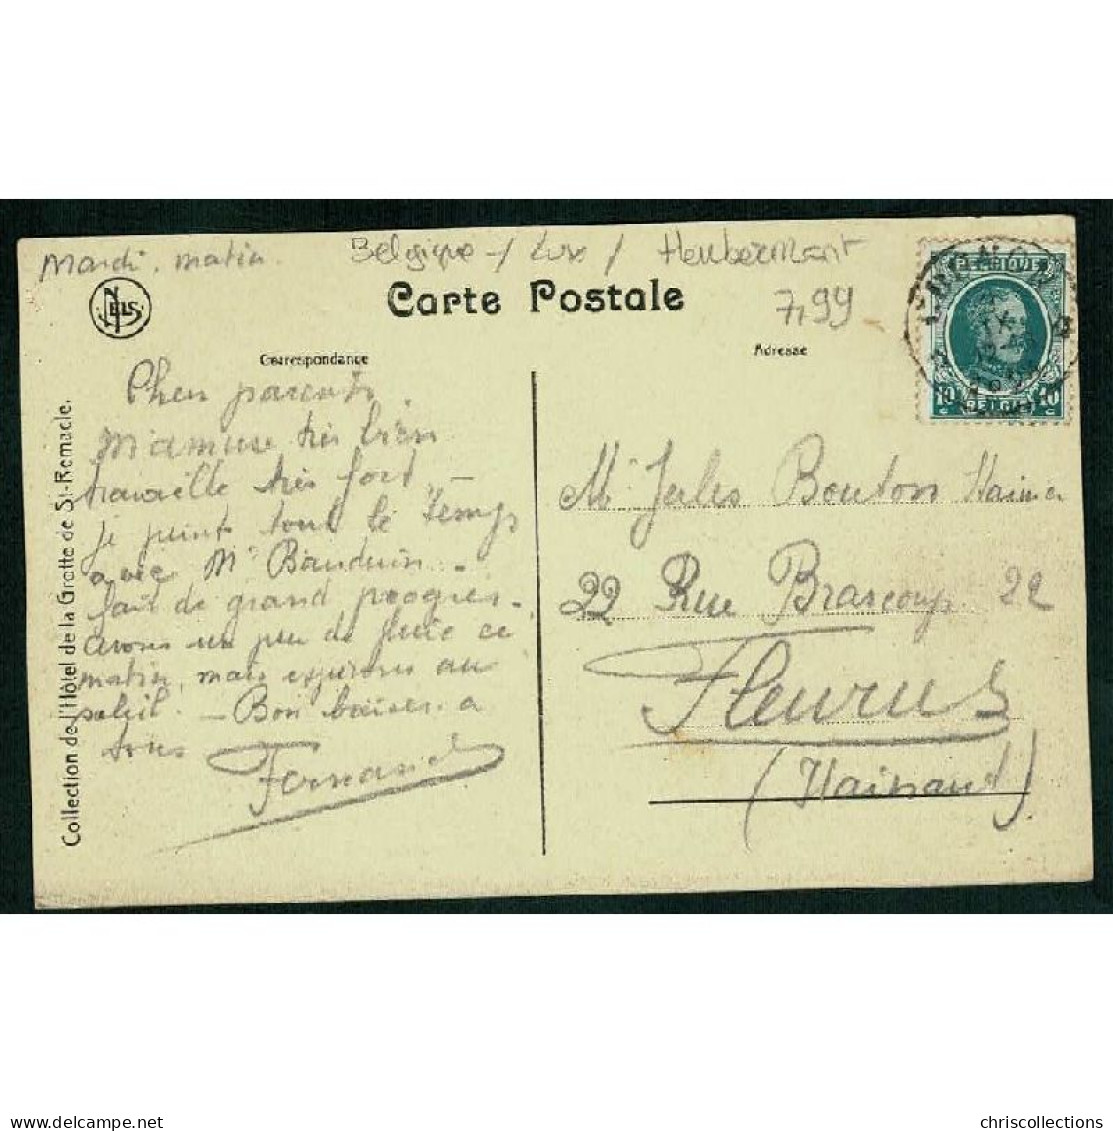 Mardi. matin.
Belgique / Lux / Herbeumont
NELS
Carte Postale
7,99
Correspondance
Adresse
BELGIQUE
10 10
BELGIË
Collection de l'Hôtel de la Grotte de St-Remacle.
Chers parents
M'amuse très bien
travaille très fort. —
je peints tout le temps
avec Mr Bauduin. —
fait de grand progres. —
avons un peu de pluie ce
matin, mais espérons au
soleil. — Bon baisers a
tous
Fernand
Mr Jules Bouton
22 Rue Brascoup 22
Fleurus
(Hainaut)
delcampe.net
chriscollections